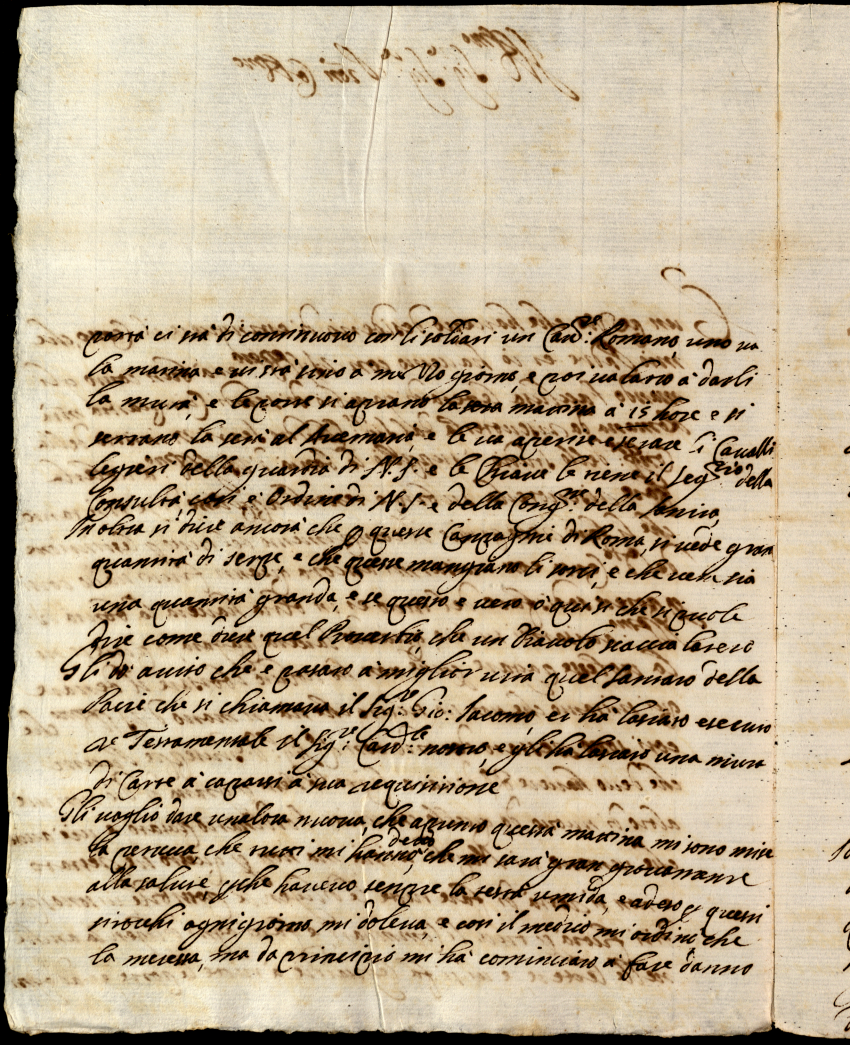 porta ci stà di continuovo con li soldati un Card.le Romano, uno va
la matina e vi stà sino a mezzo giorno, e poi va l'altro à darli
la muta, e le porte si aprano la matina à 15 hore e si
serrano la sera al Avemaria, e le va aprire e serare li Cavalli
legieri della guardia di N. S. e le Chiave le tiene il Seg.rio della
Consulta, così è Ordine di N. S. e della Cong.ne della Sanità,
In oltre si dice ancora che p queste Campagnie di Roma, si vede gran
quantità di serpe, e che queste mangiano li sorci, e che ve ne sia
una quantità granda, e se questo e vero ò quasi che si puole
dire come dice quel Proverbio, che un Diavolo scaccia l'altro
Gli dò aviso che e pasato à miglior vita quel della
Pace che si chiamava il Sig.re Gio: Iacomo, et hà lasciato esecuto
re Testamentale il Sig.re Card.le nostro, e gli hà lasciato una muta
di Carte à caparsi à sua requisitione
Gli voglio dare un'altra nuova, che apunto questa mattina mi sono mise
la peruca, che tutti mi hanno detto, che mi sarà gran giovamento
alla salute, p che havevo sempre la testa umida, e adeso p questi
sirochi ogni giorno mi doleva, e così il medico mi ordinò che
la metessi, ma da principio mi hà cominciato à fare danno